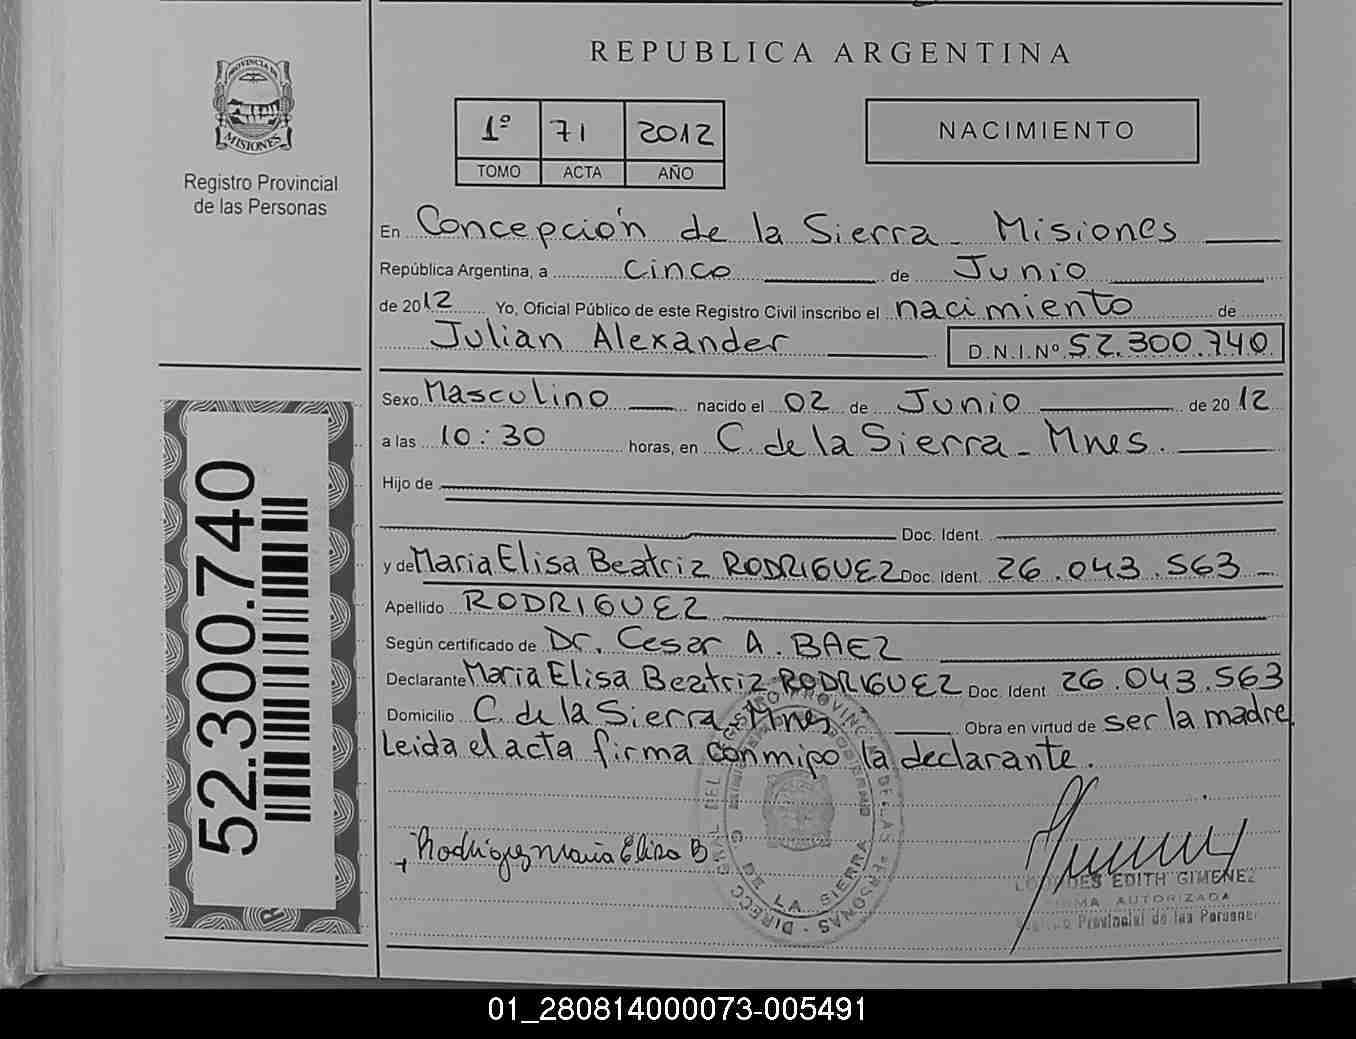 PROVINCIA DE
MISIONES
Registro Provincial
de las Personas
REPUBLICA ARGENTINA
1º 71 2012
TOMO ACTA AÑO
NACIMIENTO
En Concepción de la Sierra - Misiones
República Argentina, a cinco de Junio
de 2012 Yo, Oficial Público de este Registro Civil inscribo el nacimiento de
Julian Alexander D.N.I.Nº 52.300.740
Sexo Masculino nacido el 02 de Junio de 2012
a las 10:30 horas, en C. de la Sierra - Mnes.
Hijo de
Doc. Ident.
y de Maria Elisa Beatriz RODRIGUEZ Doc. Ident. 26.043.563 -
Apellido RODRIGUEZ
Según certificado de Dr. Cesar A. BAEZ
Declarante Maria Elisa Beatriz RODRIGUEZ Doc. Ident 26.043.563
Domicilio C. de la Sierra, Mnes Obra en virtud de ser la madre
Leida el acta firma conmigo la declarante.
Rodriguez Maria Elisa B
LOURDES EDITH GIMENEZ
FIRMA AUTORIZADA
Registro Provincial de las Personas
DIRECC. GRAL. DEL REGISTRO PROVINCIAL DE LAS PERSONAS
C. DE LA SIERRA
52.300.740
01_280814000073-005491